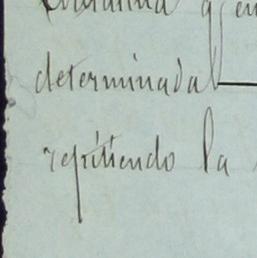 determinada
repitiendo la